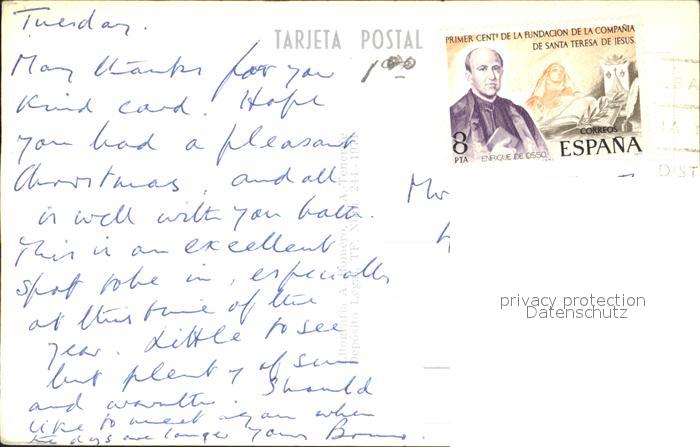 Tuesday.
TARJETA POSTAL
Many thanks for you
1.00
kind card. Hope
you had a pleasant
Christmas, and all
is well with you both.
This is an excellent
spot to be in, especially
at this time of the
year. Little to see
but plenty of sun
and warmth. Should
like to meet again when
the days are longer Yours
PRIMER CENTº DE LA FUNDACION DE LA COMPAÑIA
DE SANTA TERESA DE JESUS.
8
PTA
ENRIQUE DE OSSO
CORREOS
ESPAÑA
DIST
Mr
privacy protection
Datenschutz